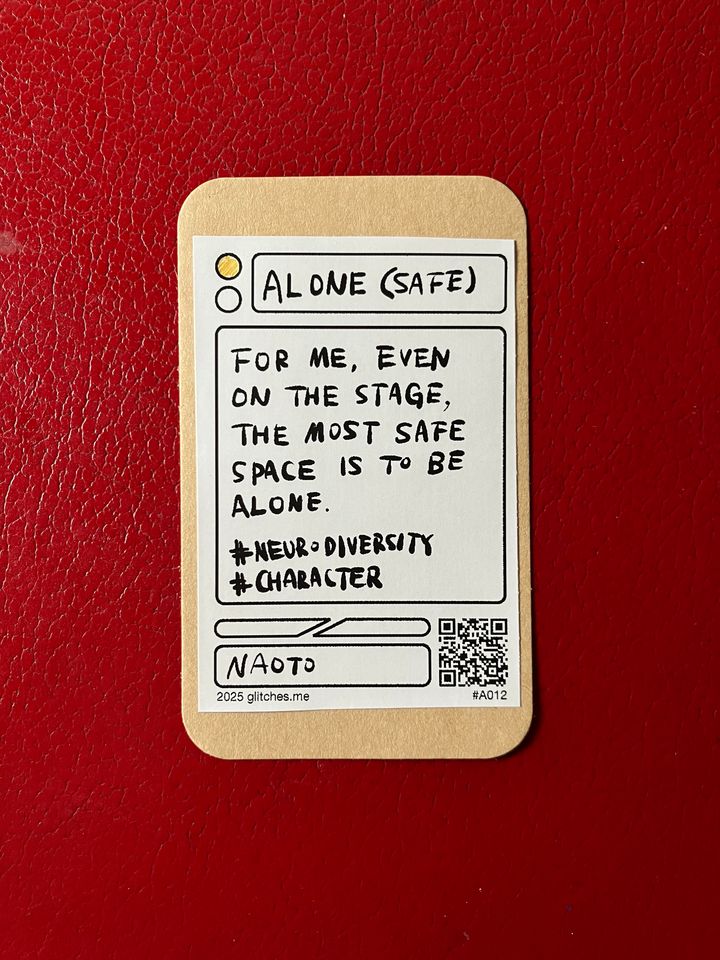 ALONE (SAFE)
FOR ME, EVEN
ON THE STAGE,
THE MOST SAFE
SPACE IS TO BE
ALONE.
#NEURODIVERSITY
#CHARACTER
NAOTO
2025 glitches.me
#A012